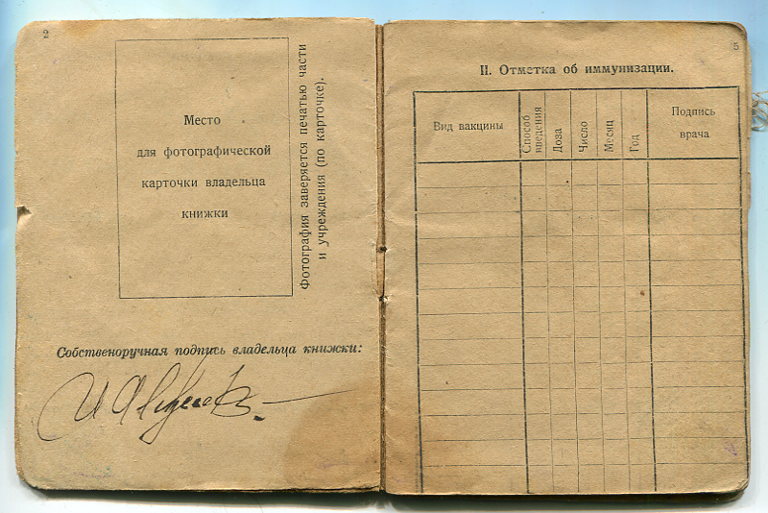 2
Место
для фотографической
карточки владельца
книжки
Фотография заверяется печатью части
и учреждения (по карточке).
Собственоручная подпись владельца книжки:
5
II. Отметка об иммунизации.
Вид вакцины
Способ
введения
Доза
Число
Месяц
Год
Подпись
врача